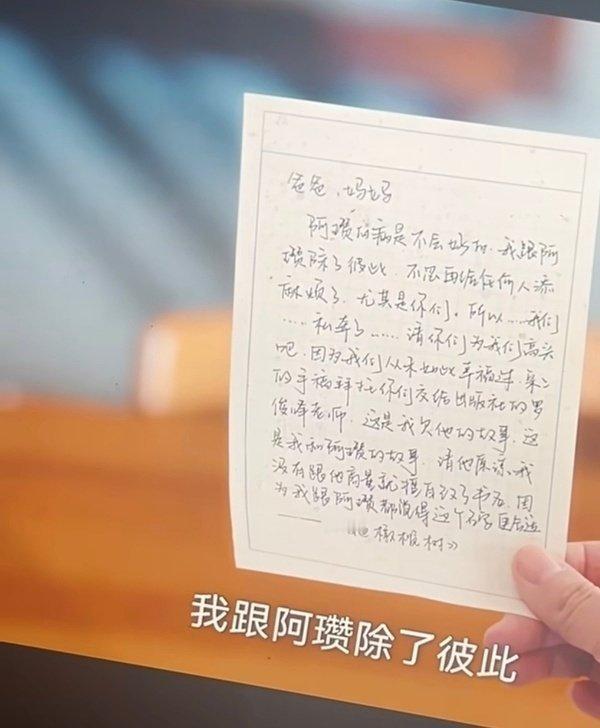 爸爸、妈妈
阿瓒的病是不会好的、我跟阿
瓒除了彼此、不想再给任何人添
麻烦了、尤其是你们。所以……我们
……私奔了……请你们为我们高兴
吧、因为我们从未如此幸福过、桌上
的手稿拜托你们交给出版社的罗
俊峰老师、这是我欠他的故事、这
是我和阿瓒的故事、请他原谅、我
没有跟他商量就擅自改了书名、因
为我跟阿瓒都觉得这个名字更合适
橄榄树》
我跟阿瓒除了彼此